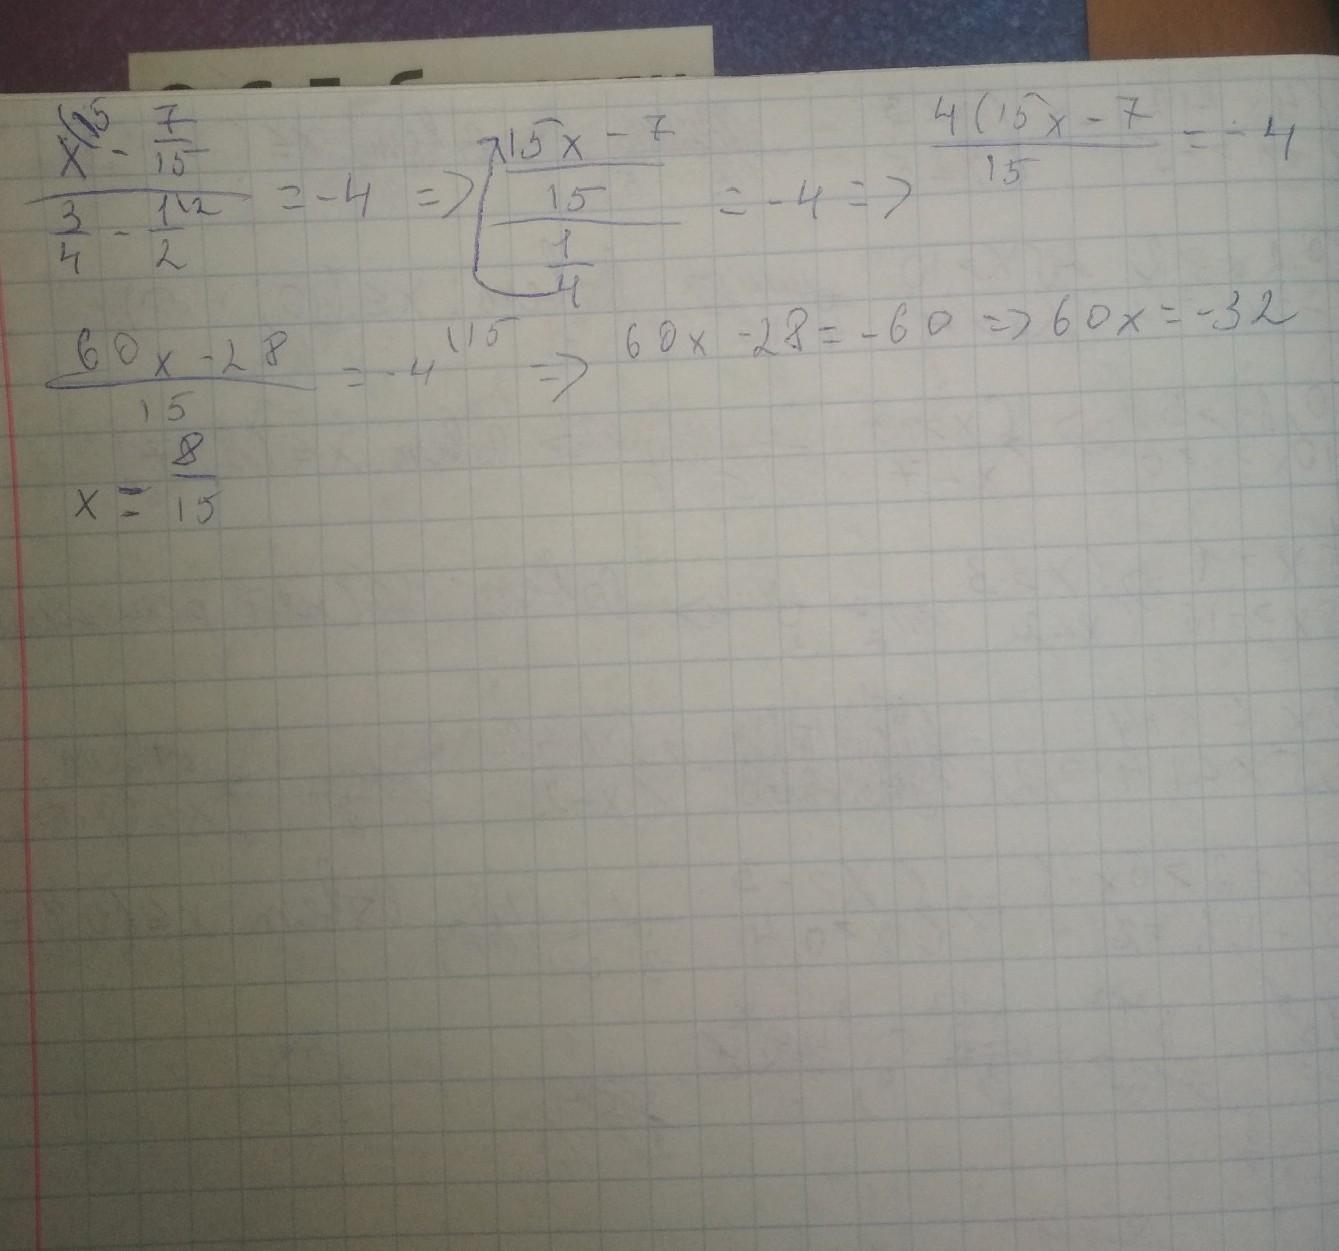 (x^{(15} - 7/15)/(3/4 - 1^{(2}/2) = -4 => ((15x - 7)/15)/(1/4) = -4 => 4(15x - 7/15 = -4
(60x - 28)/15 = -4^{(15} => 60x - 28 = -60 => 60x = -32
x = 8/15